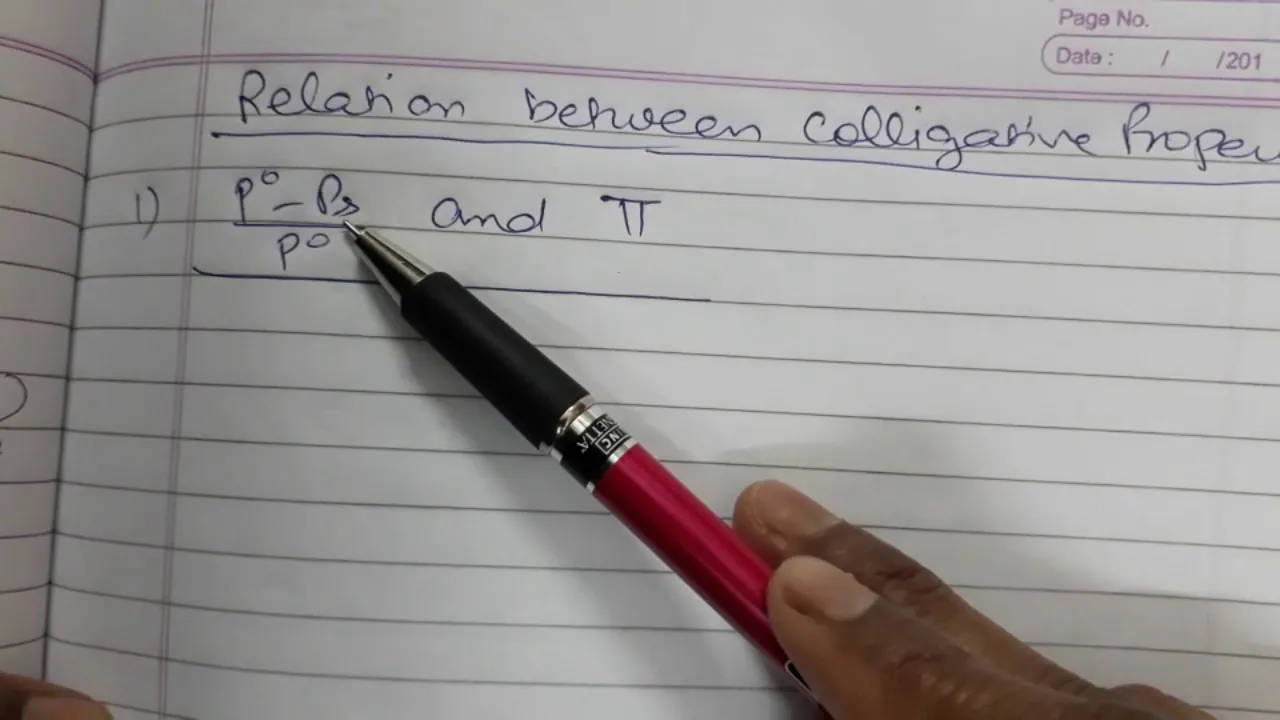 Page No.
Date : / /201
Relation between Colligative Proper
1) P° - Ps and π
P°